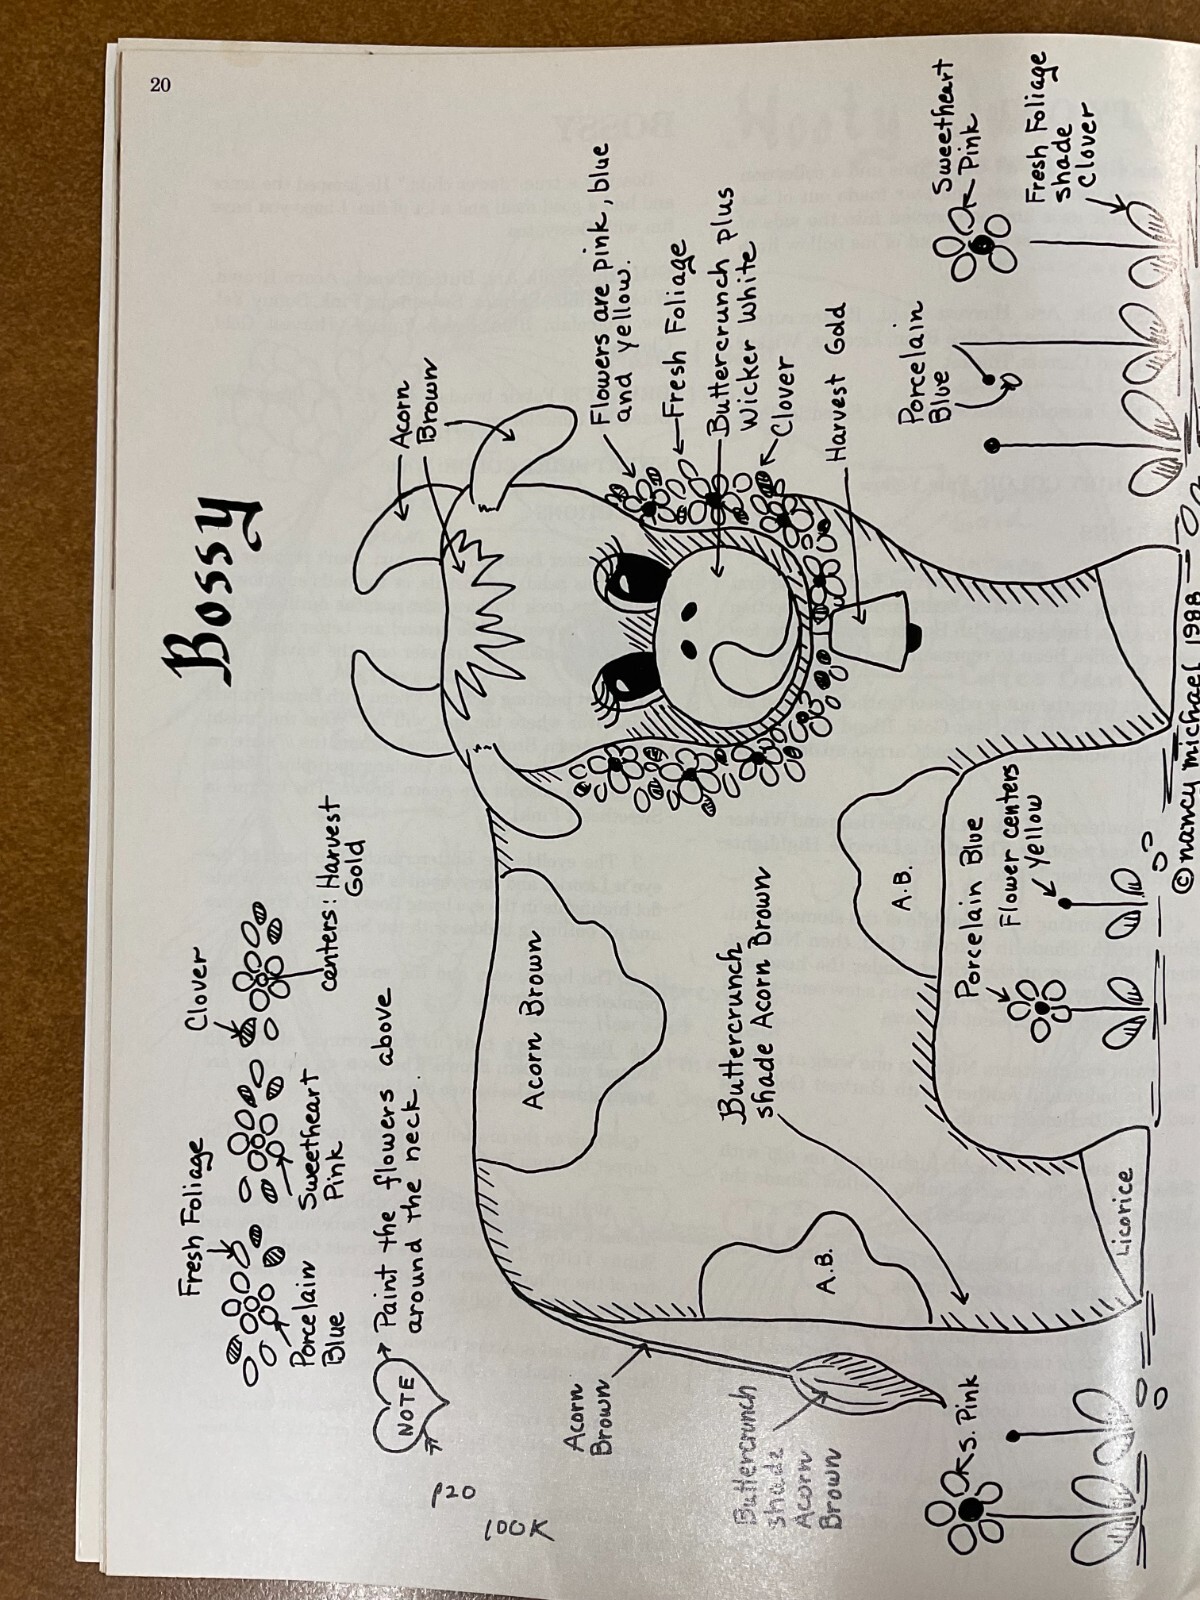 20
Bossy
Fresh Foliage
Clover
Porcelain
Blue
Sweetheart
Pink
centers: Harvest
Gold
NOTE
Paint the flowers above
around the neck.
p20
100K
Acorn
Brown
Flowers are pink, blue
and yellow.
Fresh Foliage
Buttercrunch plus
Wicker White
Clover
Harvest Gold
Acorn Brown
Acorn
Brown
Buttercrunch
shade Acorn Brown
A.B.
A.B.
Buttercrunch
shade
Acorn
Brown
Porcelain
Blue
Sweetheart
Pink
Fresh Foliage
shade
Clover
Porcelain Blue
Flower centers
Yellow
Licorice
S. Pink
©nancy michael 1988